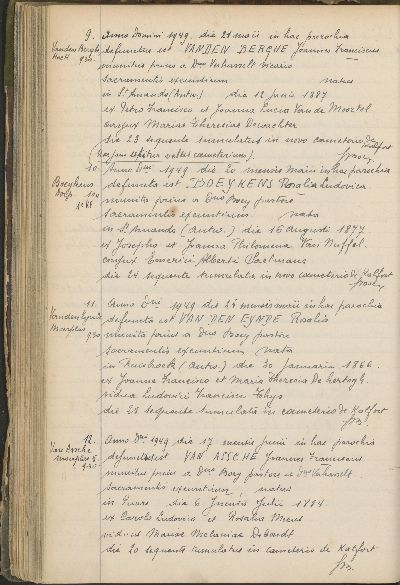 9. Anno Domini 1949, die 21 maii in hac parochia
Vanden Berghe defunctus est VANDEN BERGHE Joannes Franciscus
munitus prius a Dno Verhasselt vicario
sacramentis exeuntium natus
in St Amands (Antw.) die 12 junii 1887
ex Petro Francisco et Joanna Lucia Van de Moortel
conjux Mariae Theresiae Dewachter
die 23 sequente tumulatus in novo cemeterio de Kalfort
10. Anno Dni 1949 die 20 mensis Maii in hac parochia
Boeykens defuncta est BOEYKENS Rosalia Ludovica
munita prius a Dno Boey pastore
sacramentis exeuntium nata
in St Amands (Antw.) die 16 augusti 1877
ex Josepho et Joanna Philomena Van Nuffel
conjux Emerici Alberti Saelmans
die 24 sequente tumulata in novo cemeterio de Kalfort
11. Anno Dni 1949 die 25 mensis maii in hac parochia
Vanden Eynde defuncta est VAN DEN EYNDE Rosalia
munita prius a Dno Boey pastore
sacramentis exeuntium nata
in (Antw.) die 30 januarii 1866
ex Joanne Francisco et Maria Theresia De hertogh
vidua Ludovici Francisci
die 28 sequente tumulata in cemeterio de Kalfort
12. Anno Dni 1949 die 17 mensis junii in hac parochia
Van Assche defunctus est VAN ASSCHE Joannes Franciscus
munitus prius a Dno Boey pastore et Dno Verhasselt
sacramentis exeuntium, natus
in Puurs die 6 mensis Julii 1884
ex Carolo Ludovico et Rosalia Meeus
viduus Mariae Melaniae Deboudt
die 20 sequente tumulatus in cemeterio de Kalfort